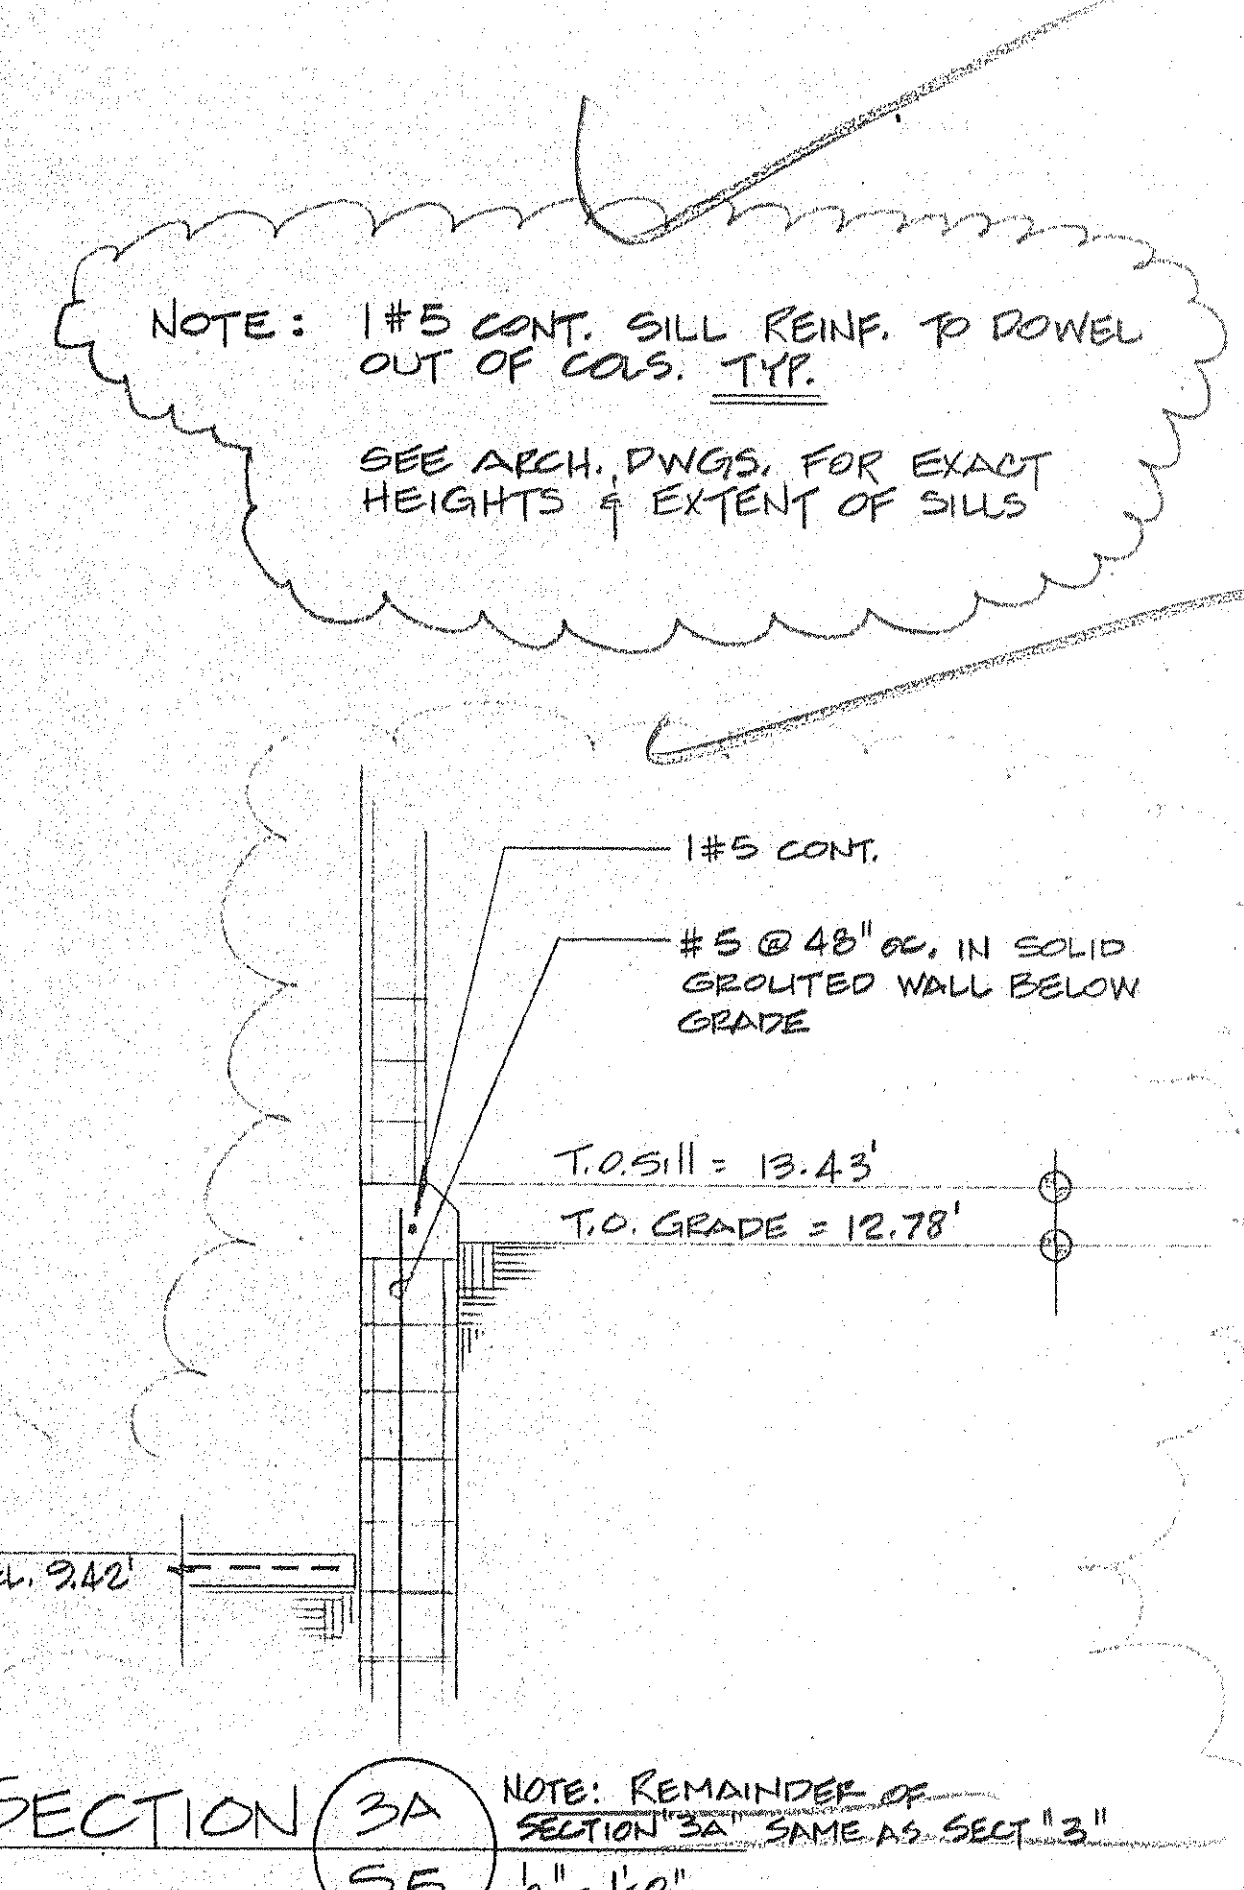 NOTE: 1#5 CONT. SILL REINF. TO DOWEL
OUT OF COLS. TYP.
SEE ARCH. DWGS. FOR EXACT
HEIGHTS & EXTENT OF SILLS
1#5 CONT.
#5 @ 48" OC. IN SOLID
GROUTED WALL BELOW
GRADE
T.O. Sill = 13.43'
T.O. GRADE = 12.78'
EL. 9.42'
SECTION 3A
NOTE: REMAINDER OF
SECTION "3A" SAME AS SECT "3"
S5